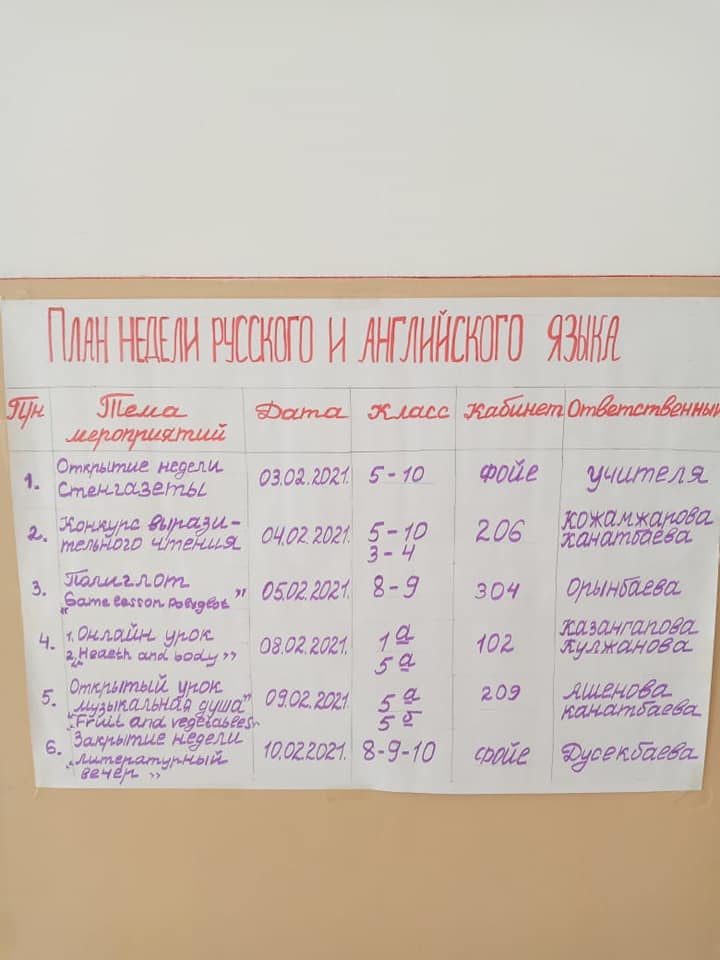 План недели русского и английского языка
Пун Тема мероприятий Дата Класс Кабинет Ответственный
1. Открытие недели Стенгазеты 03.02.2021. 5-10 фойе учителя
2. Конкурс вырази-тельного чтения 04.02.2021. 5-10 3-4 206 Кожамжарова Канатбаева
3. Полиглот „Game lesson Polyglot” 05.02.2021. 8-9 304 Орынбаева
4. 1. Онлайн урок 2. „Health and body” 08.02.2021. 1 а 5 а 102 Казангапова Кулжанова
5. Открытый урок „Музыкальная душа” „Fruit and vegetables” 09.02.2021. 5 а 5 б 209 Яшенова Канатбаева
6. Закрытие недели „Литературный вечер” 10.02.2021. 8-9-10 фойе Дусекбаева